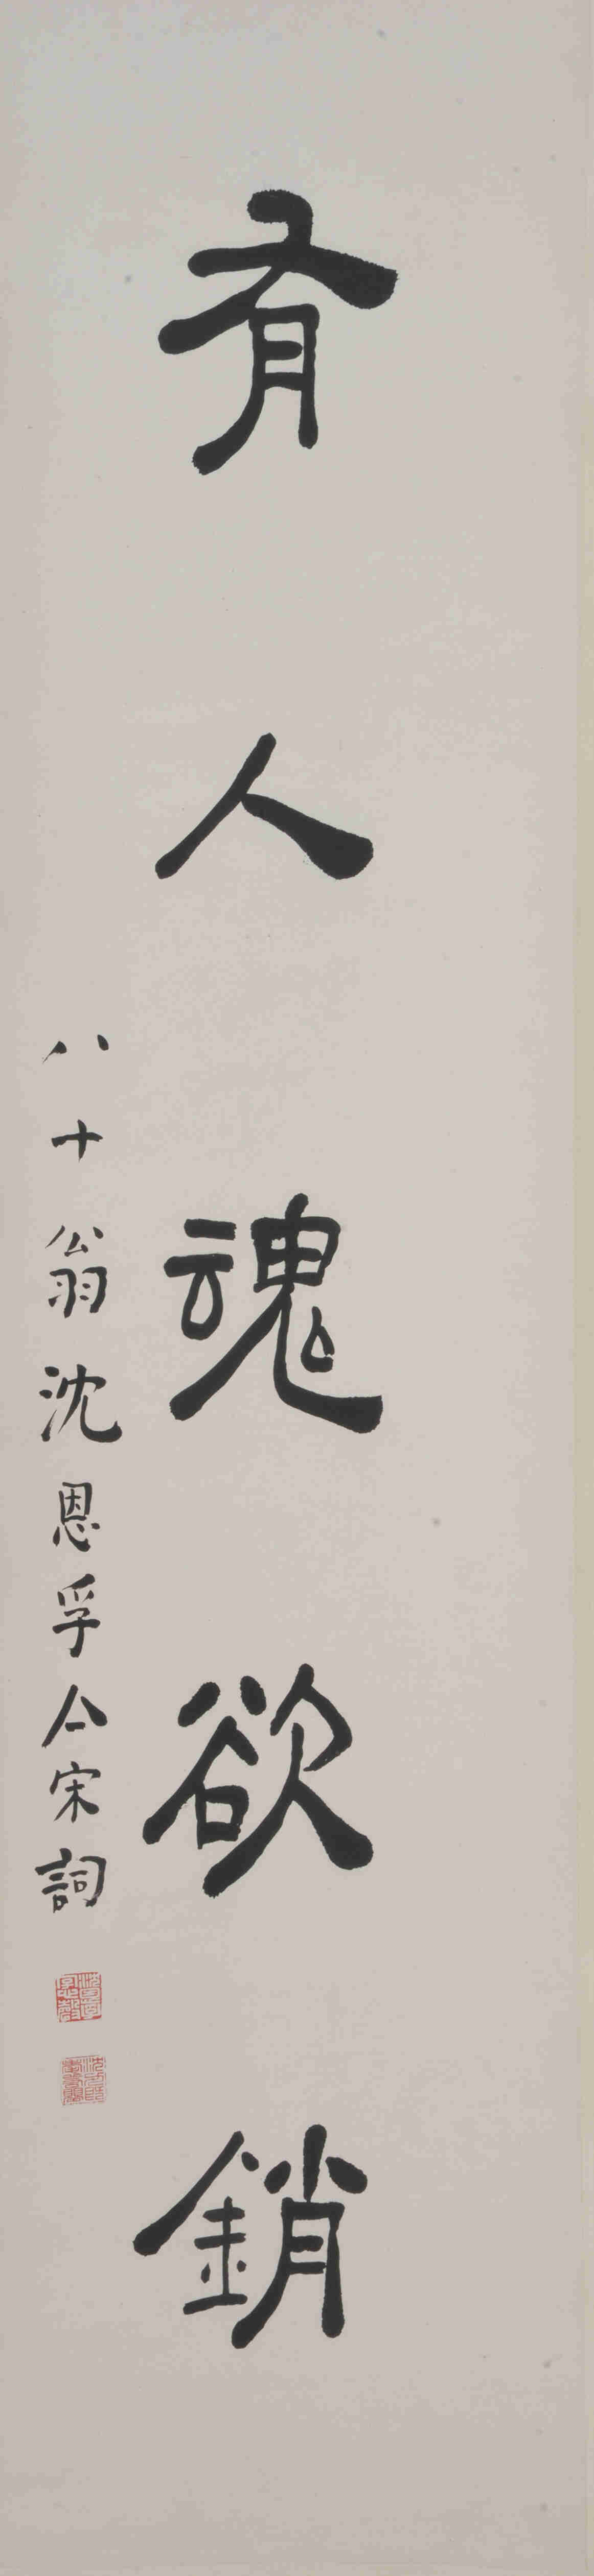 有人魂欲銷
八十翁沈恩孚亼宋詞